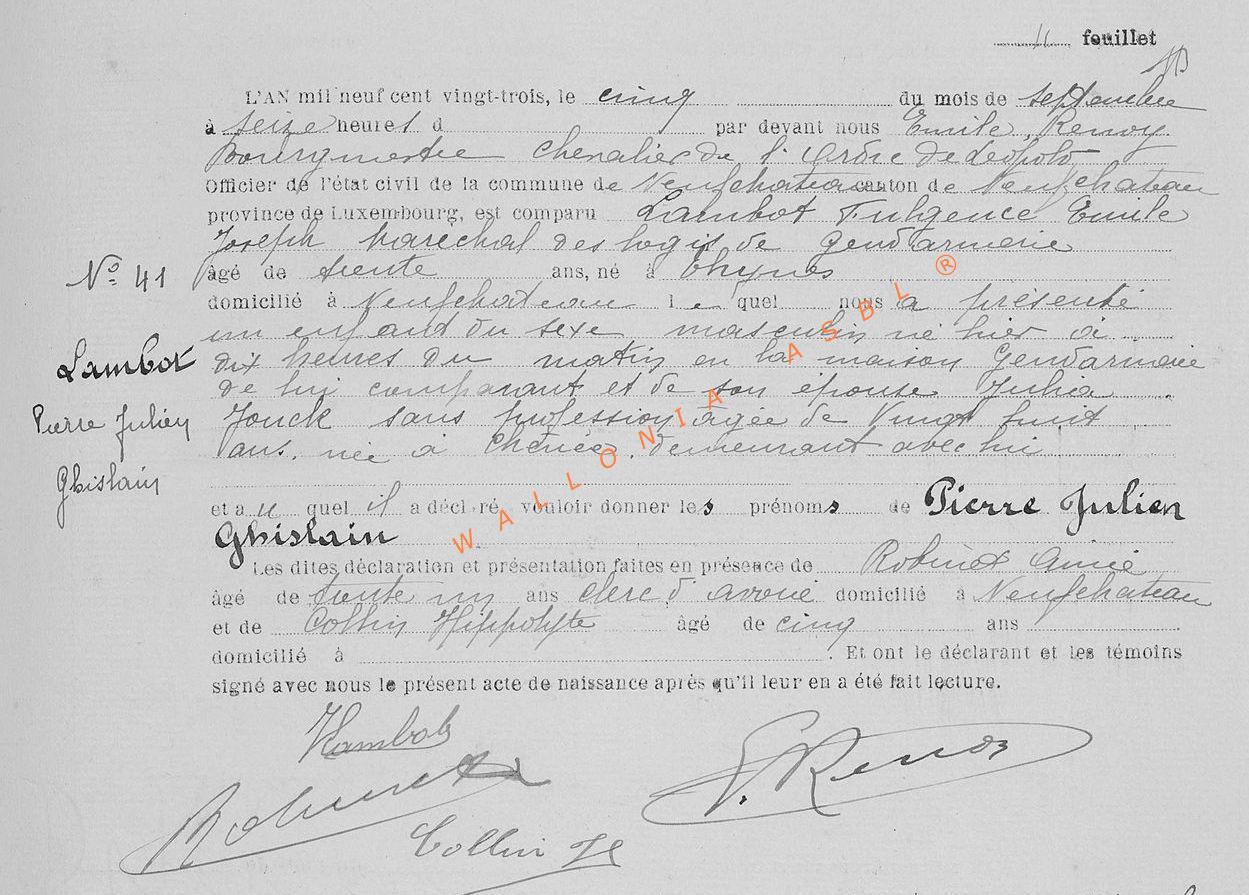 11 feuillet
L'AN mil neuf cent vingt-trois, le cinq du mois de septembre
à seize heures d par devant nous Emile Renoy
Bourgmestre Chevalier de l'Ordre de Léopold
Officier de l'état civil de la commune de Neufchateau canton de Neufchateau
province de Luxembourg, est comparu Lambot Fulgence Emile
Joseph Maréchal des logis de Gendarmerie
N° 41
âgé de trente ans, né à Thynes
domicilié à Neufchateau lequel nous a présenté
un enfant du sexe masculin né hier à
Lambot
dix heures du matin en la maison Gendarmerie
de lui comparant et de son épouse Julia
Pierre Julien
Jonck sans profession âgée de Vingt huit
ans, née à Chênée, demeurant avec lui
Ghislain
et au quel il a déclaré vouloir donner les prénoms de Pierre Julien
Ghislain
Les dites déclaration et présentation faites en présence de Robinet Aimé
âgé de trente un ans clerc d'avoué domicilié à Neufchateau
et de Collin Hippolyte âgé de cinq ans
domicilié à . Et ont le déclarant et les témoins
signé avec nous le présent acte de naissance après qu'il leur en a été fait lecture.
Lambot
E. Renoy
Robinet
Collin H
WALLONIA ASBL ®